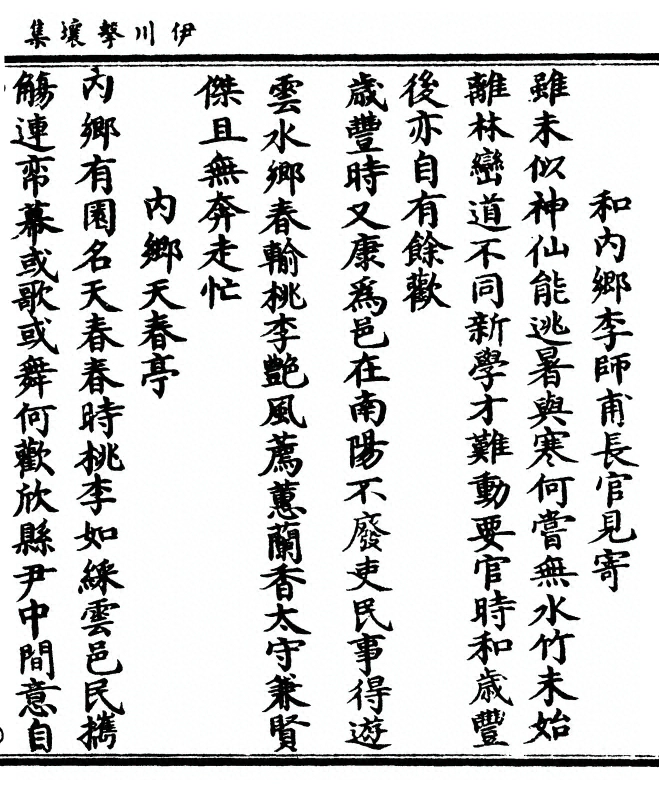 伊川擊壤集
和內鄉李師甫長官見寄
雖未似神仙能逃暑與寒何嘗無水竹未始
離林巒道不同新學才難動要官時和歲豐
後亦自有餘歡
歲豐時又康爲邑在南陽不廢吏民事得遊
雲水鄉春輸桃李艶風薦蕙蘭香太守兼賢
傑且無奔走忙
內鄉天春亭
內鄉有園名天春春時桃李如綵雲邑民攜
觴連帟幕或歌或舞何歡欣縣尹中間意自